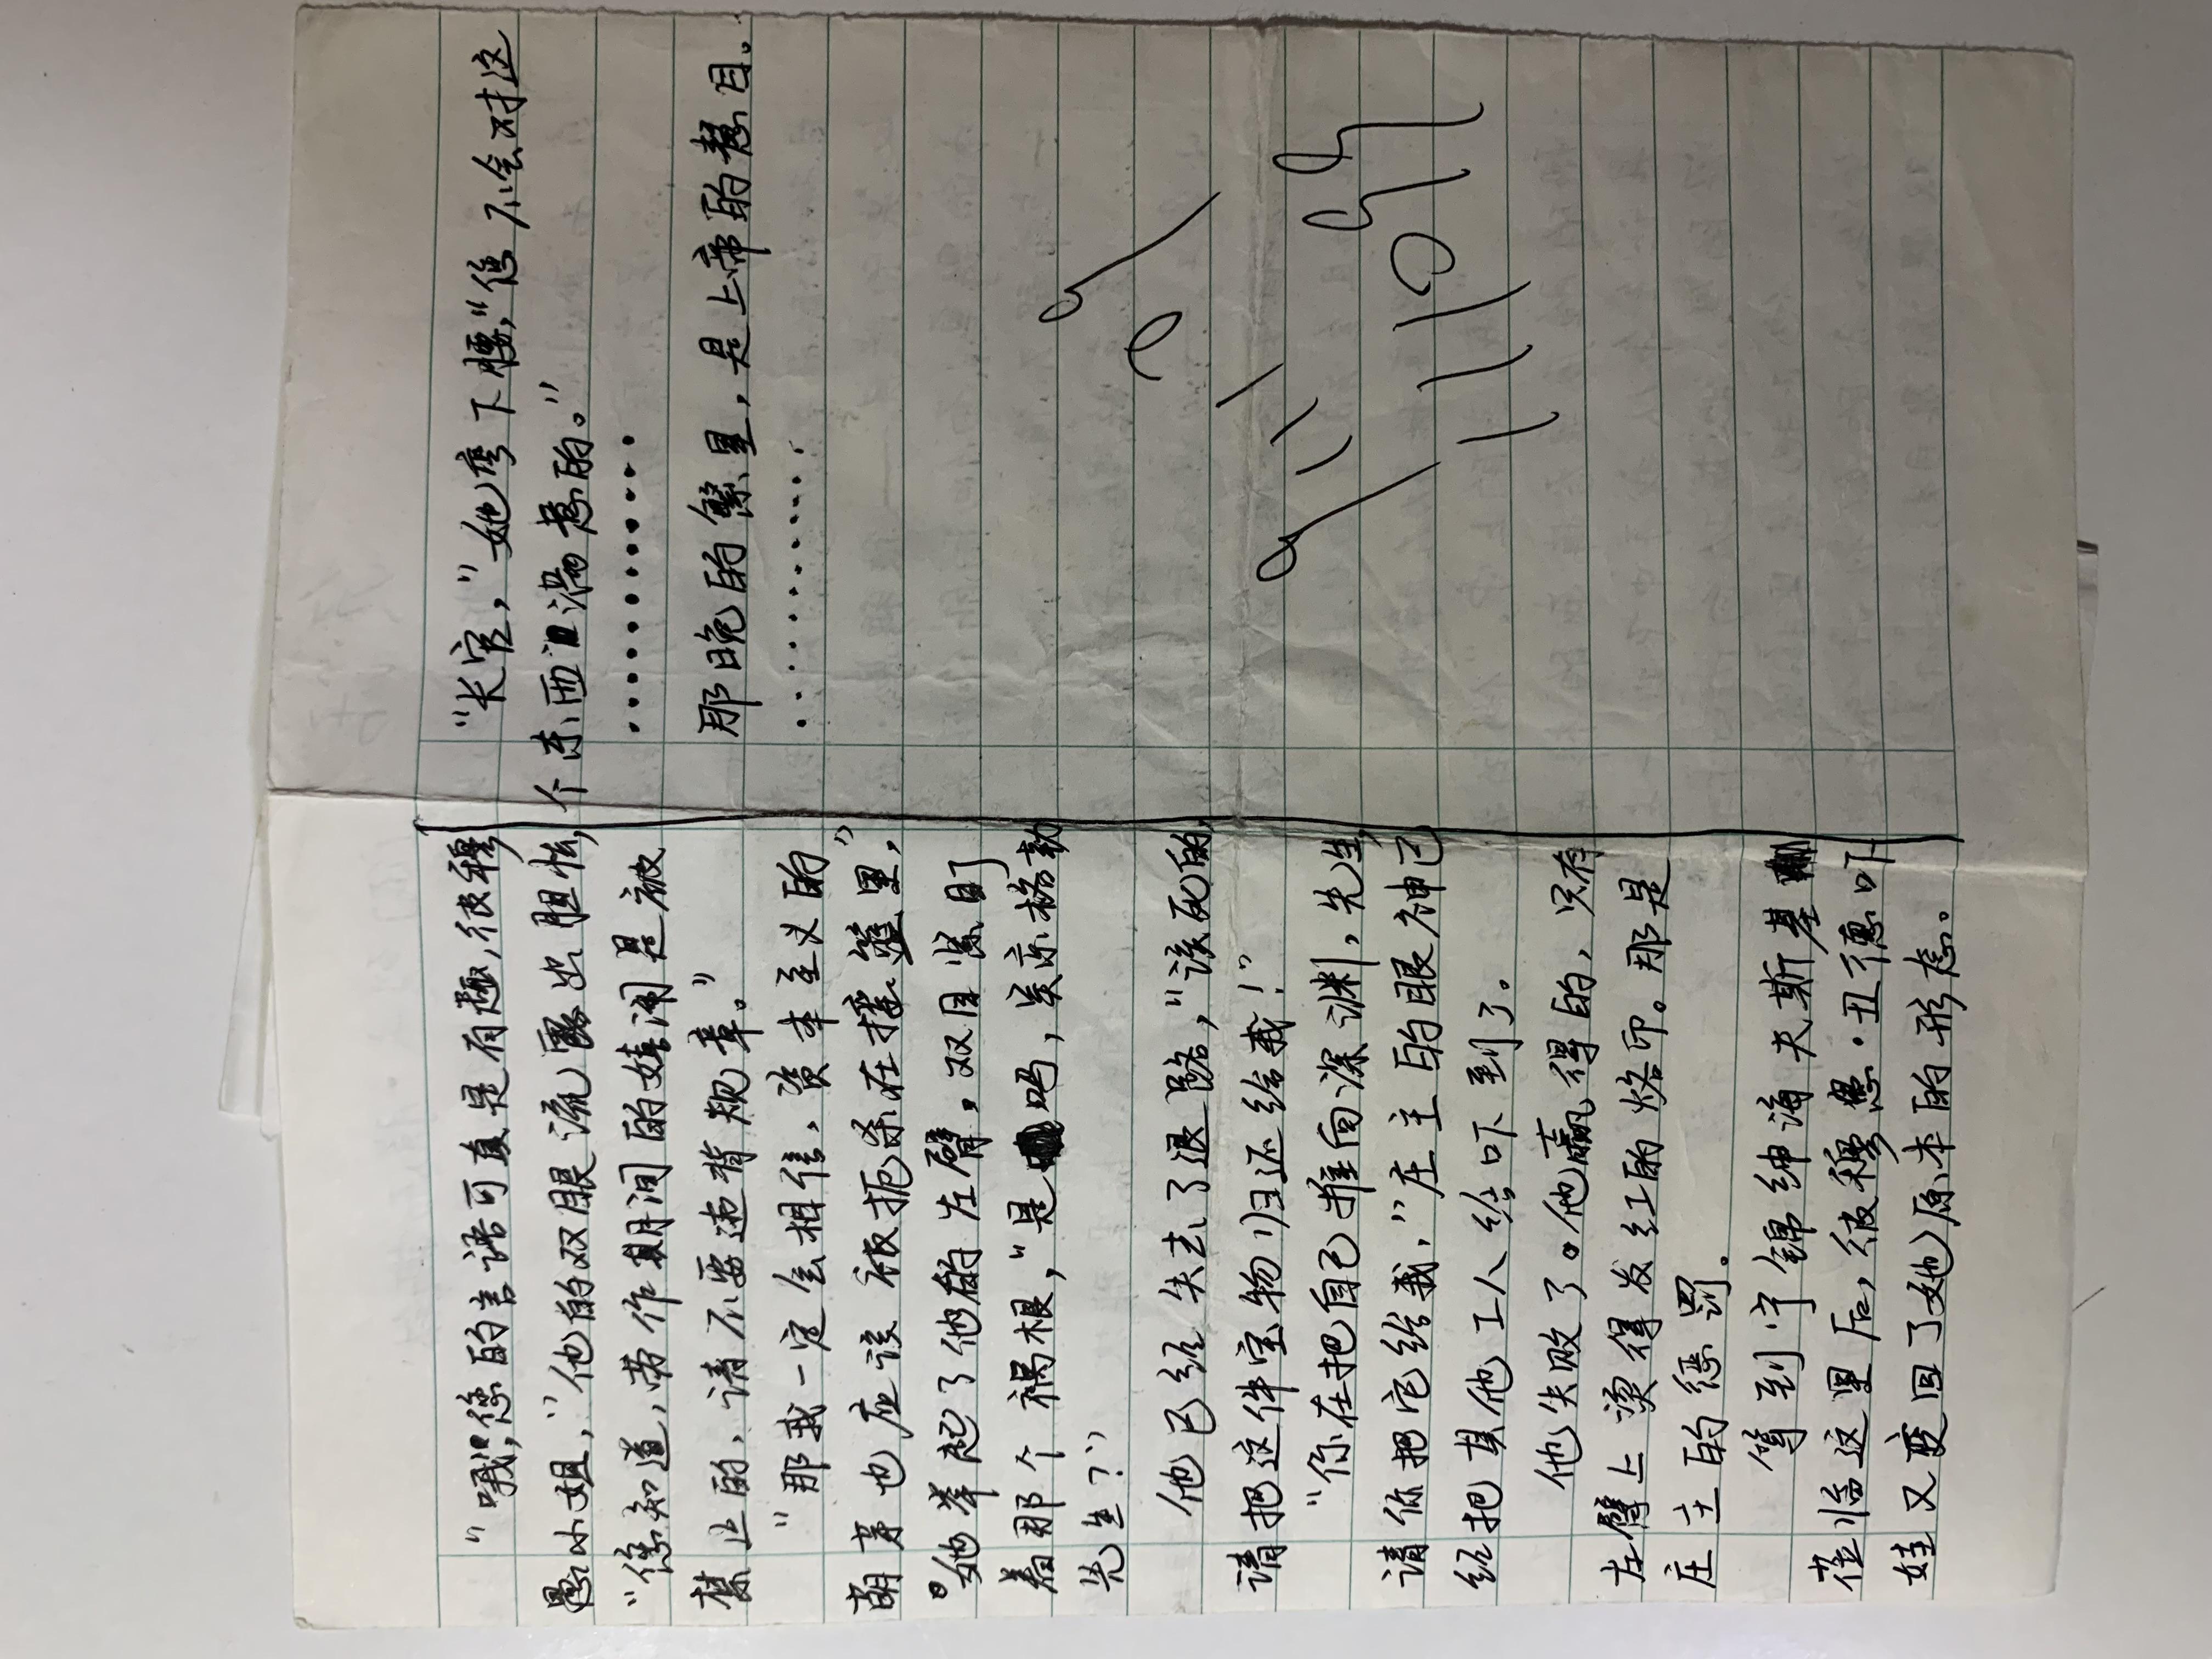 “哦，您的言语可真是有趣，彼穆
愚小姐，”他的双眼流露出胆怯，
“您知道，劳作期间的嬉闹是被
禁止的，请不要违背规章。”
“那我一定会相信，资本主义的
萌芽也应该被扼杀在摇篮里，”
她举起了他的左臂，双目紧盯
着那个祸根，“是吗，吴京格勒
先生？”
他已经失去了退路，“该死的，
请把这件宝物归还给我！”
“你在把自己推向深渊，先生，
请你把它给我，”庄主的眼神已
经把其他工人给吓到了。
他失败了。他赢得的，只有
左臂上烫得发红的烙印。那是
庄主的惩罚。
等到宁锦绅海夫斯基
莅临这里后，彼穆愚·丑德吓
娃又变回了她原本的形态。
“长官，”她弯下腰，“您不会对这
个东西满意的。”
............
那晚的繁星，是上帝的慧目。
............